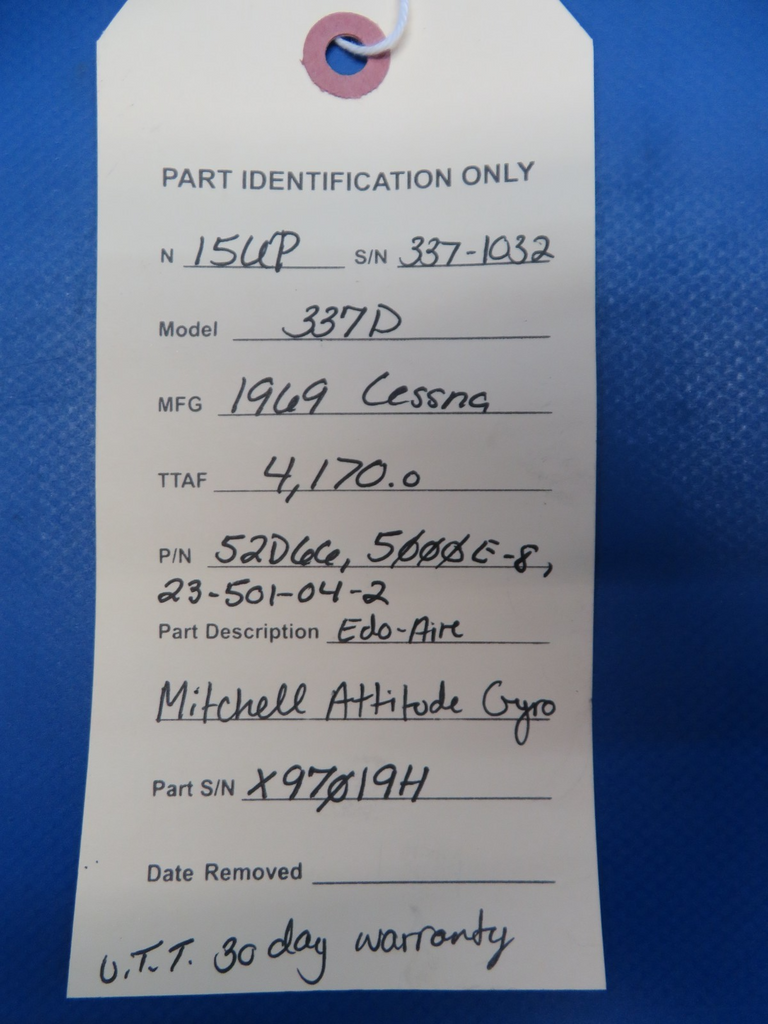 PART IDENTIFICATION ONLY
N 156UP S/N 337-1032
Model 337D
MFG 1969 Cessna
TTAF 4,170.0
P/N 52D66, 5000E-8,
23-501-04-2
Part Description Edo-Aire
Mitchell Attitude Gyro
Part S/N X97019H
Date Removed
U.T.T. 30 day warranty